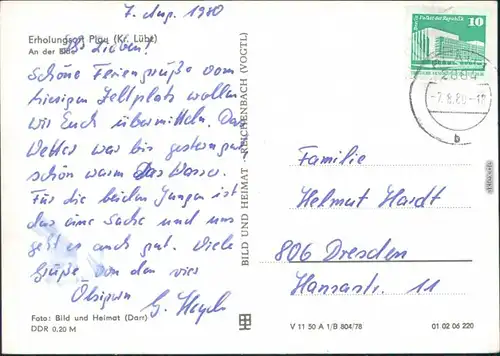 7. Aug. 1980
Erholungsort Plau (Kr. Lübz)
An der Elde
Ihr Lieben!
Schöne Feriengrüße vom
hiesigen Zeltplatz wollen
wir Euch übermitteln. Das
Wetter war bis gestern
schön warm das Wasser.
Für die beiden Jungen ist
das eine Sache und uns
geht es auch gut. Viele
Grüße von den vier
G.
Foto: Bild und Heimat (Darr)
DDR 0,20 M
BILD UND HEIMAT REICHENBACH (VOGTL)
Palast der Republik
10
-7.8.80-17
b
Familie
Helmut Hardt
806 Dresden
Hansastr. 11
V 11 50 A 1/B 804/78
01 02 06 220